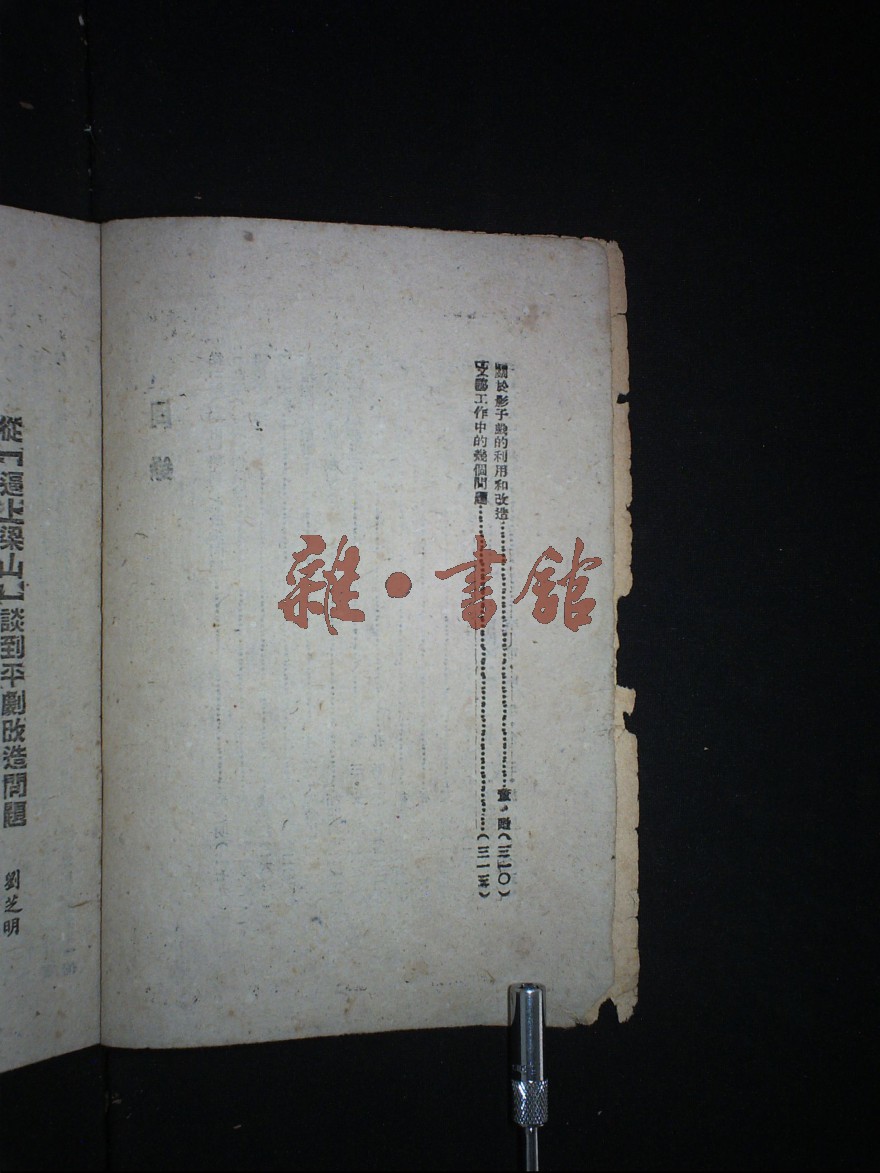 關於影子戲的利用和改造……………………………(三一〇)
文藝工作中的幾個問題……………………………(三一五)
雜·書館
從『逼上梁山』談到平劇改造問題
劉芝明